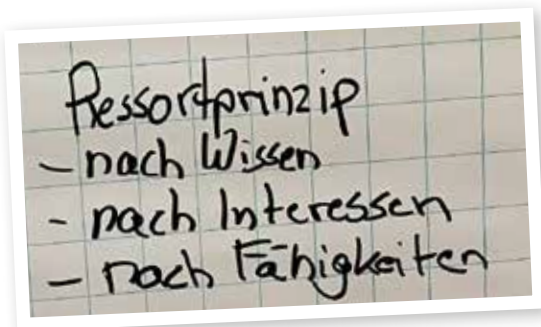 Ressortprinzip
- nach Wissen
- nach Interessen
- nach Fähigkeiten